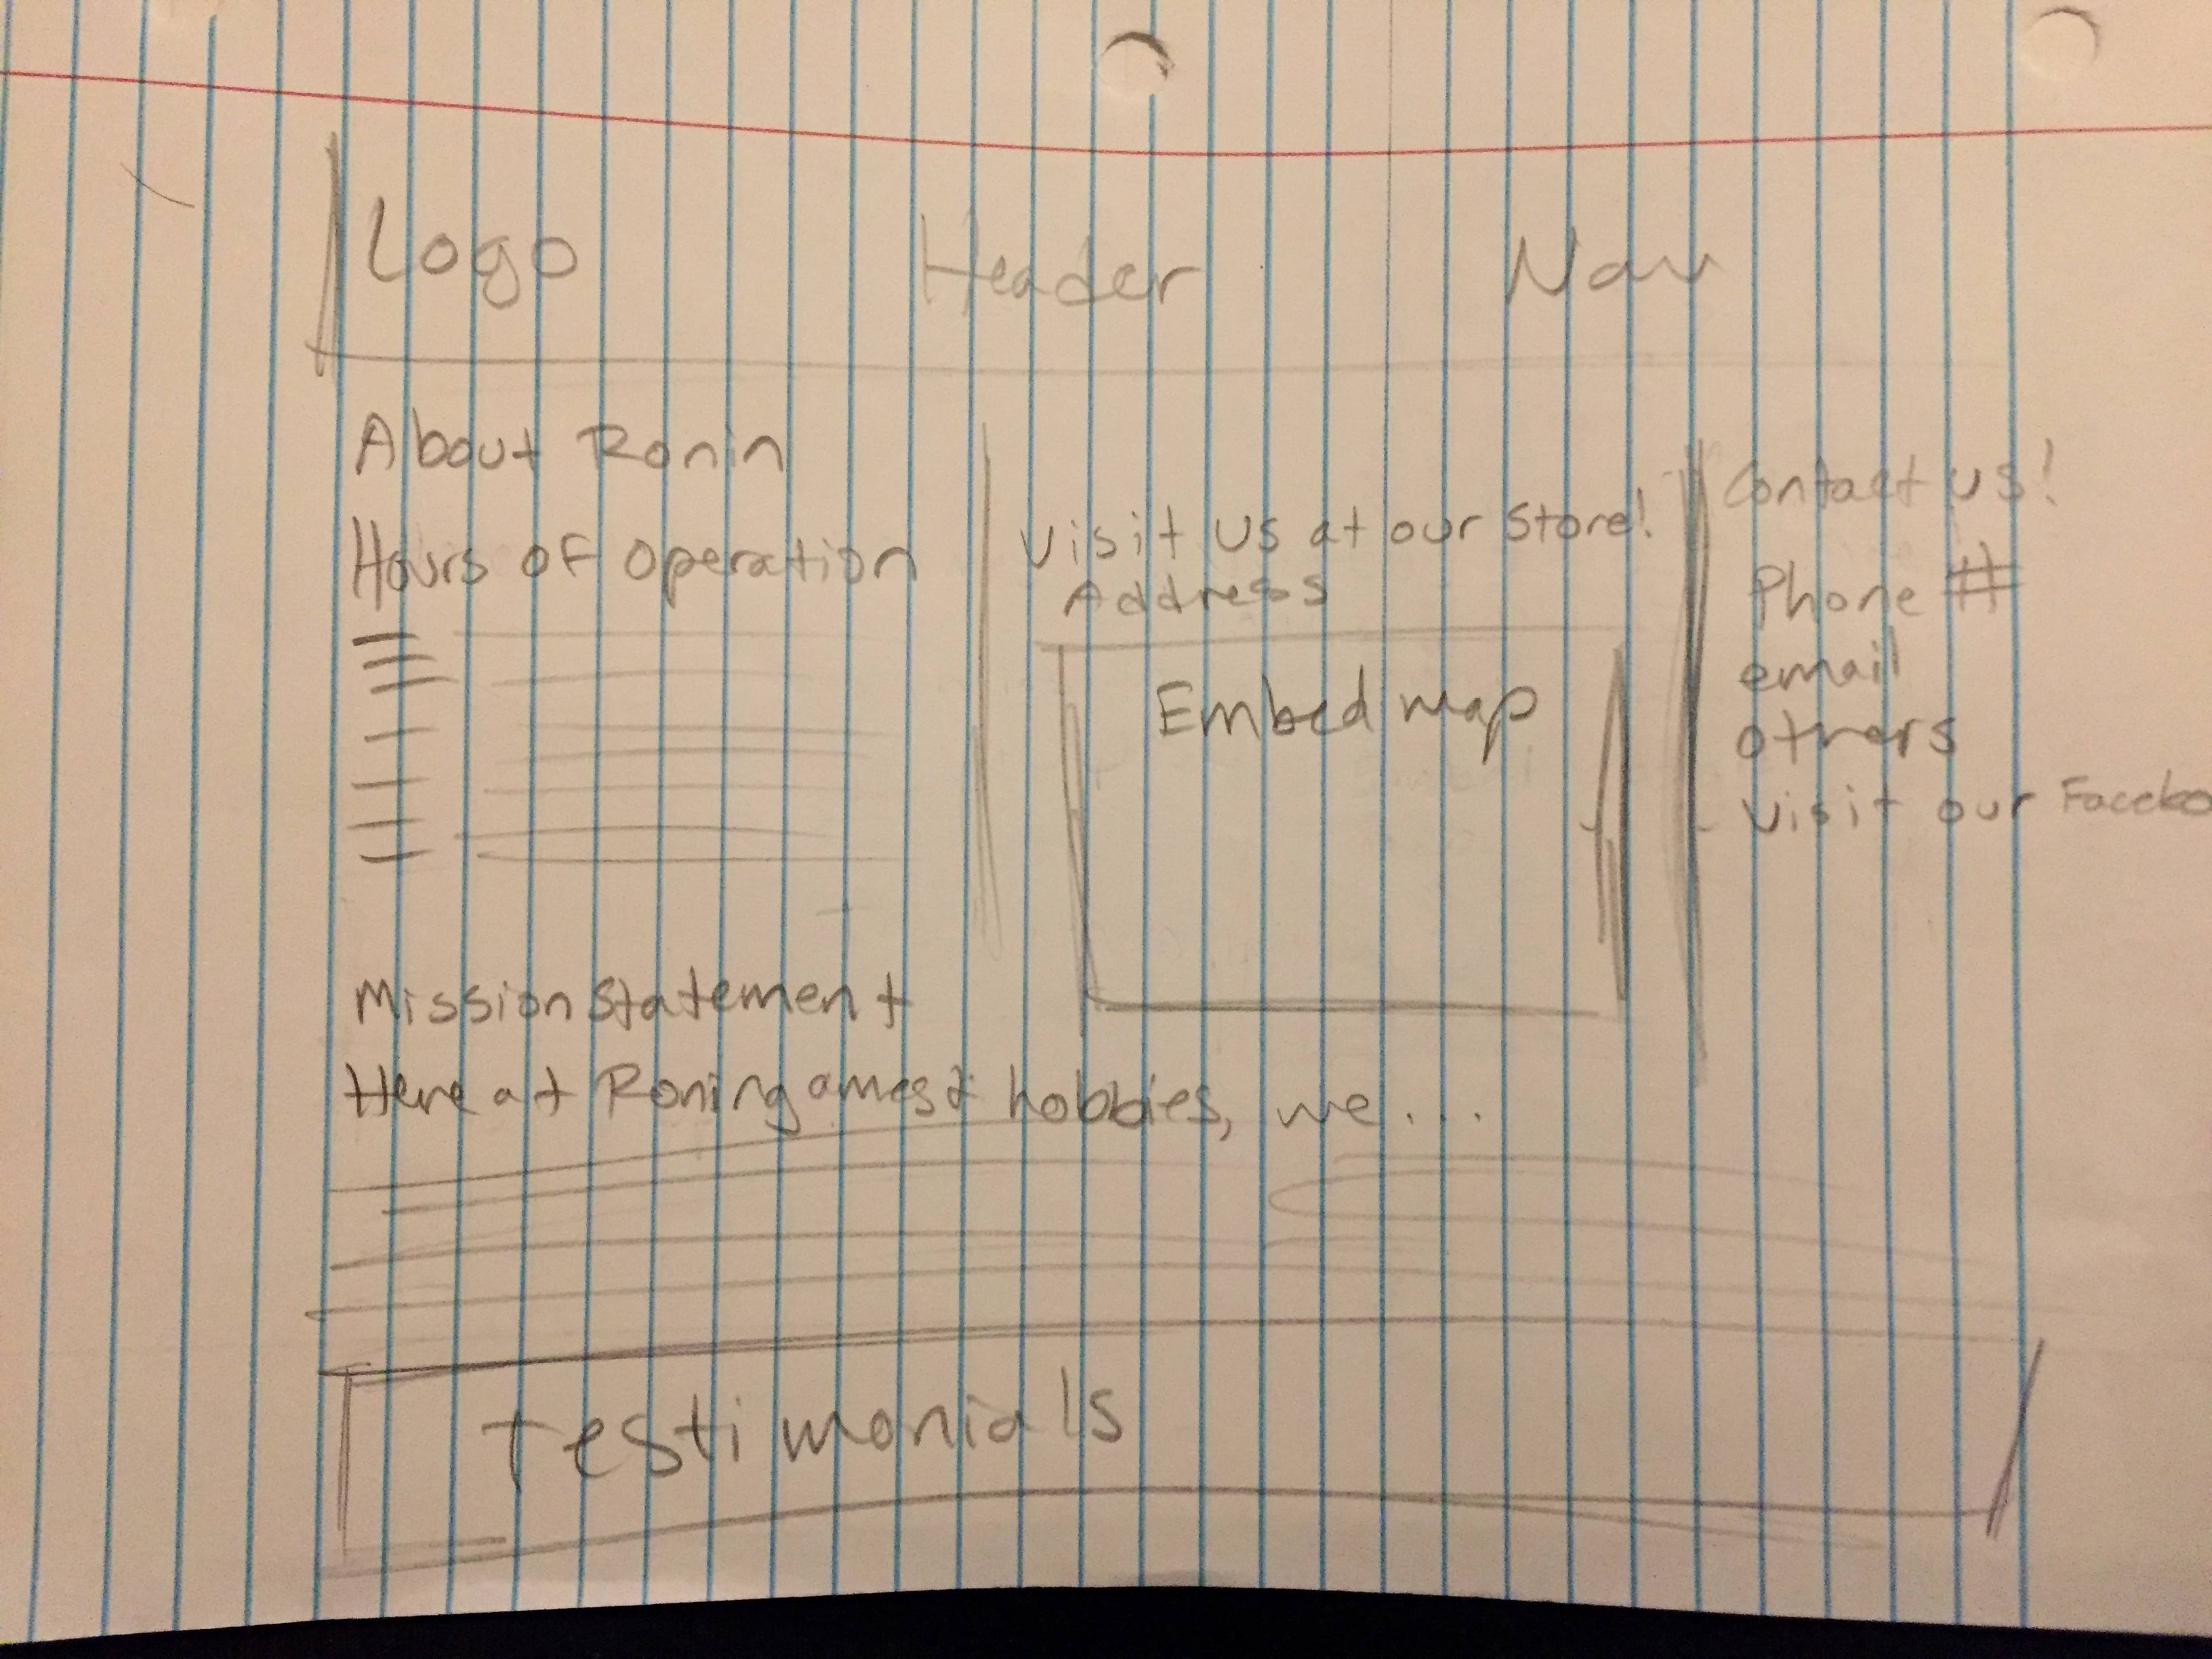 Logo Header Nav
About Ronin
Hours of operation
Visit us at our store!
Address
Embed map
Contact us!
Phone #
email
others
Visit our Facebo
Mission Statement
Here at Ronin games & hobbies, we...
Testimonials